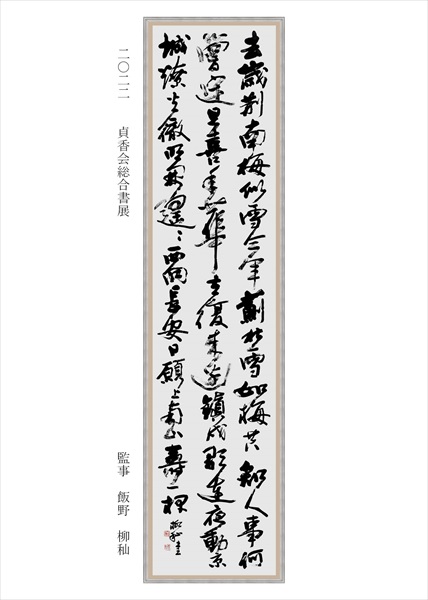 去歳荊南梅似雪今年薊北雪如梅共知人事何
嘗定且喜年華去復来邊鎮戍歌連夜動京
城燎火徹明開遥々西向長安日願上南山壽一杯 柳秈書
二〇二二 貞香会総合書展
監事 飯野 柳秈